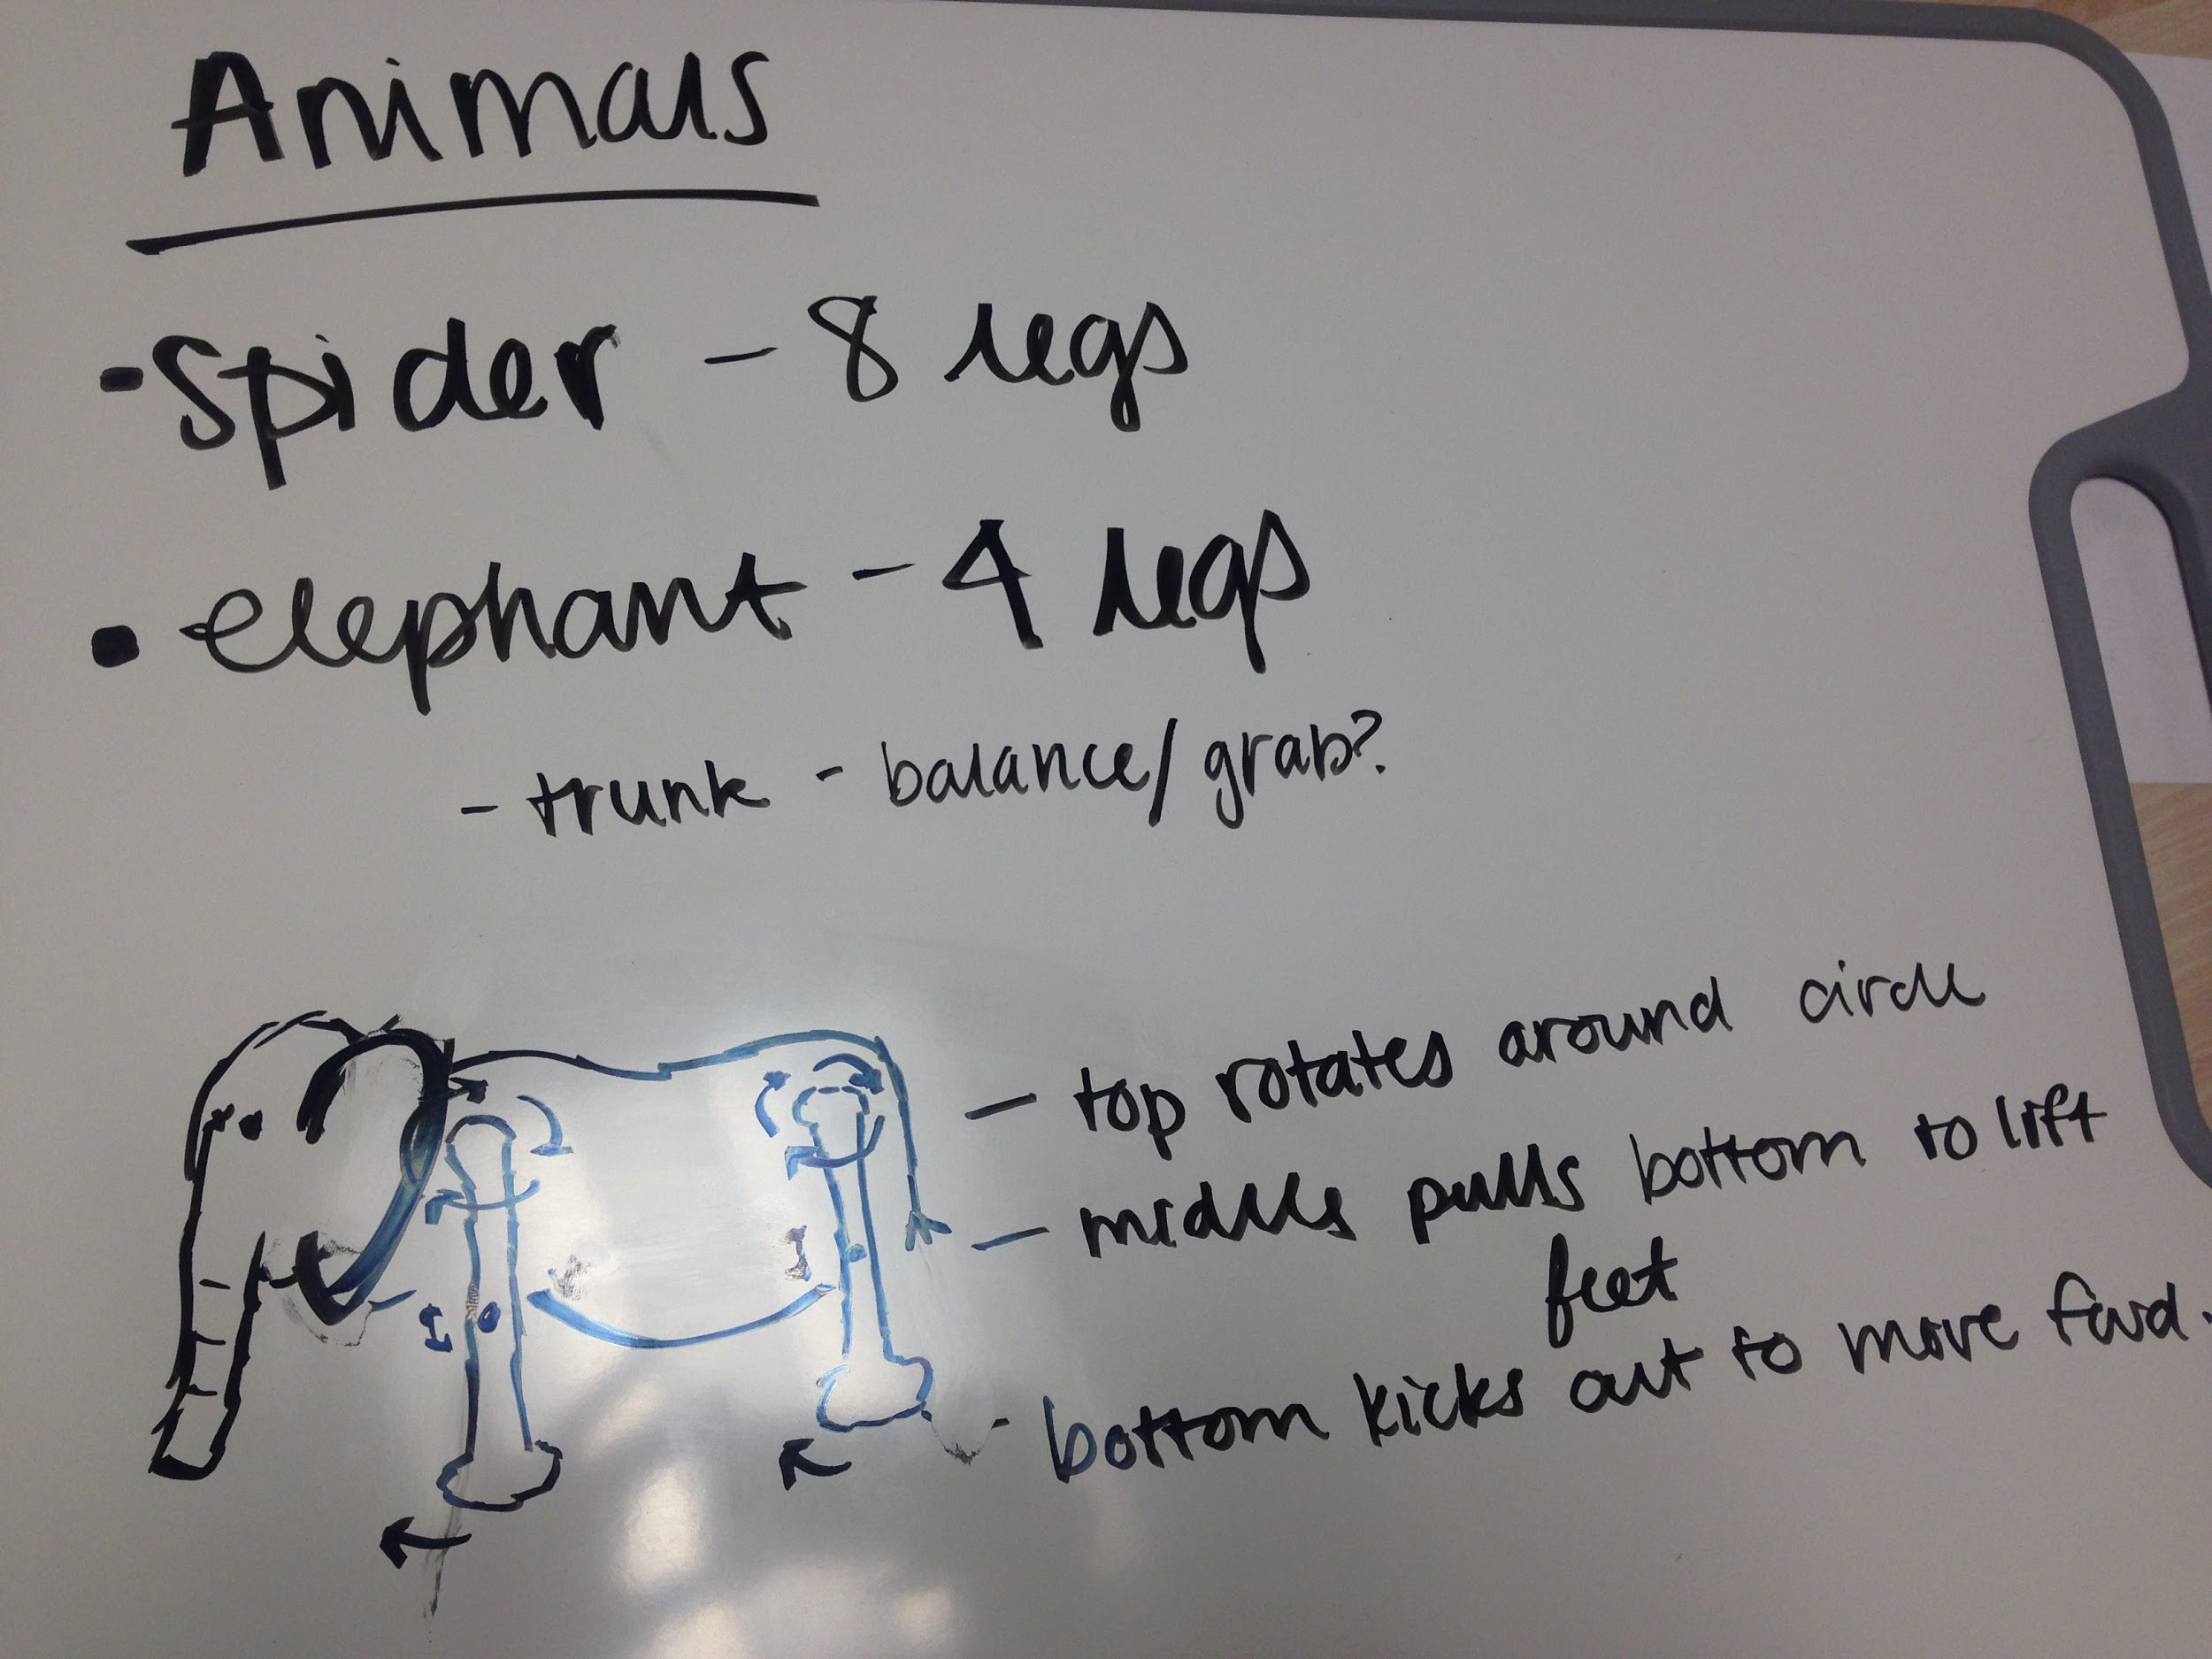 Animals
- Spider - 8 legs
• elephant - 4 legs
- trunk - balance/grab?
- top rotates around circle
- middle pulls bottom to lift
feet
- bottom kicks out to move fwd.